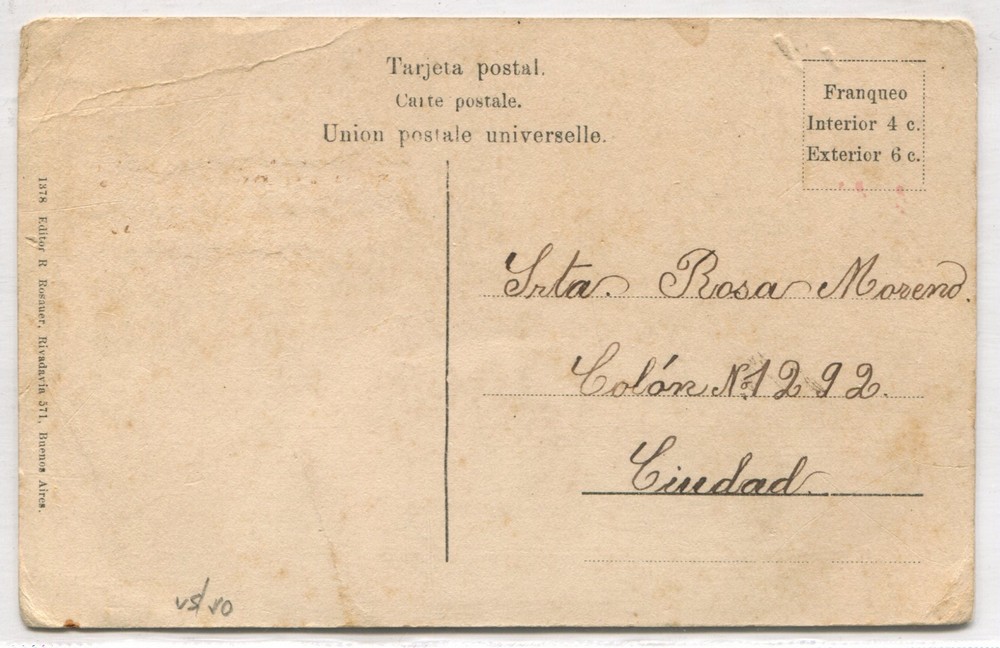 Tarjeta postal.
Carte postale.
Union postale universelle.
Franqueo
Interior 4 c.
Exterior 6 c.
1378 Editor R. Rosauer, Rivadavia 571, Buenos Aires.
Srta. Rosa Moreno.
Colón No. 1292.
Ciudad.